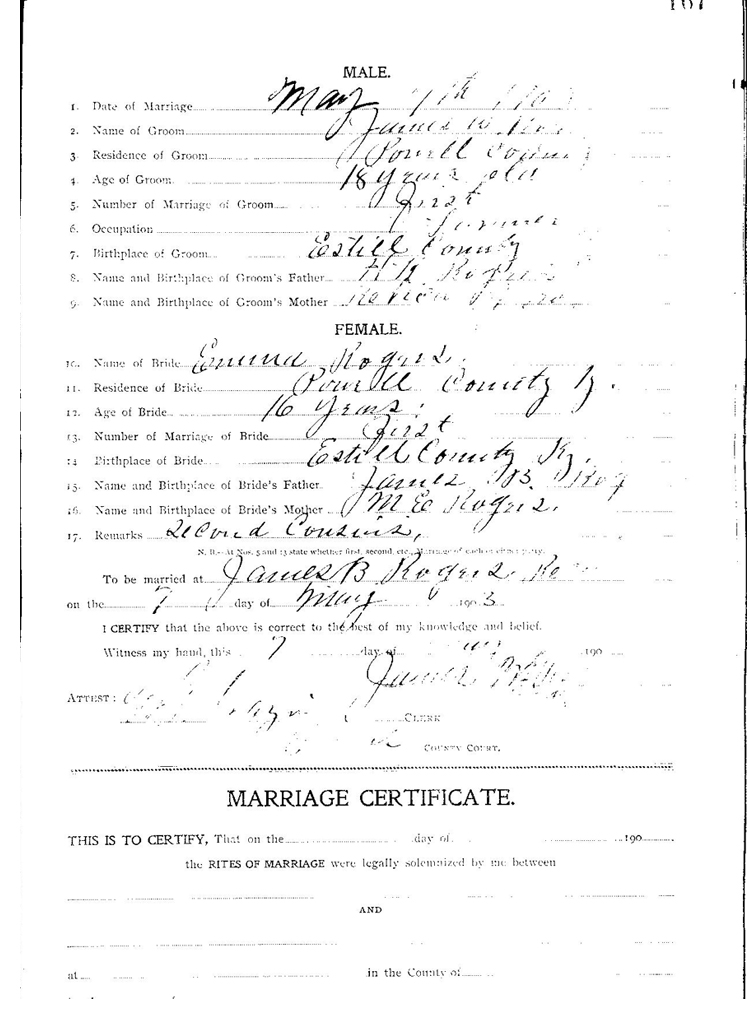 167
MALE.
1. Date of Marriage May 7th 190
2. Name of Groom James
3. Residence of Groom Powell County
4. Age of Groom 18 years old
5. Number of Marriage of Groom first
6. Occupation Farmer
7. Birthplace of Groom Estill County
8. Name and Birthplace of Groom's Father
9. Name and Birthplace of Groom's Mother
FEMALE.
10. Name of Bride Rogers.
11. Residence of Bride Powell County Ky.
12. Age of Bride 16 years.
13. Number of Marriage of Bride first
14 Birthplace of Bride Estill County Ky.
15. Name and Birthplace of Bride's Father James B. Rog
16. Name and Birthplace of Bride's Mother M E Rogers.
17. Remarks Second Cousins,
N. B.—At Nos. 5 and 13 state whether first, second, etc., Marriage of each or either party.
To be married at James B Rogers
on the 7 day of May 1903
I CERTIFY that the above is correct to the best of my knowledge and belief.
Witness my hand, this 7 day of 190
James
ATTEST:
CLERK
COUNTY COURT.
MARRIAGE CERTIFICATE.
THIS IS TO CERTIFY, That on the day of 190
the RITES OF MARRIAGE were legally solemnized by me between
AND
at in the County of